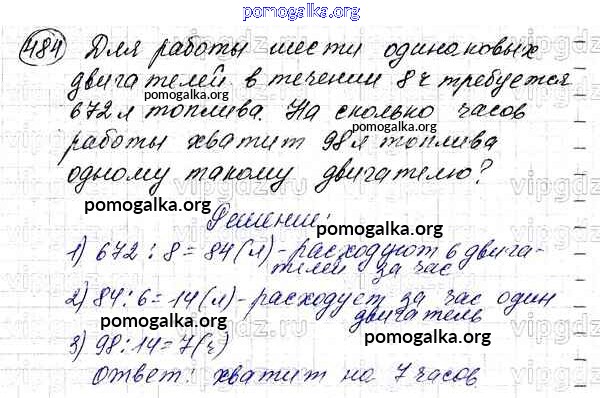 pomogalka.org
484 Для работы шести одинаковых
двигателей в течении 8 ч требуется
pomogalka.org
672 л топлива. На сколько часов
pomogalka.org
работы хватит 98 л топлива
одному такому двигателю?
pomogalka.org
Решение:
1) 672 : 8 = 84 (л) - расходуют 6 двига-
pomogalka.org телей за час
2) 84 : 6 = 14 (л) - расходует за час один
pomogalka.org двигатель
3) 98 : 14 = 7 (ч)
pomogalka.org
Ответ: хватит на 7 часов